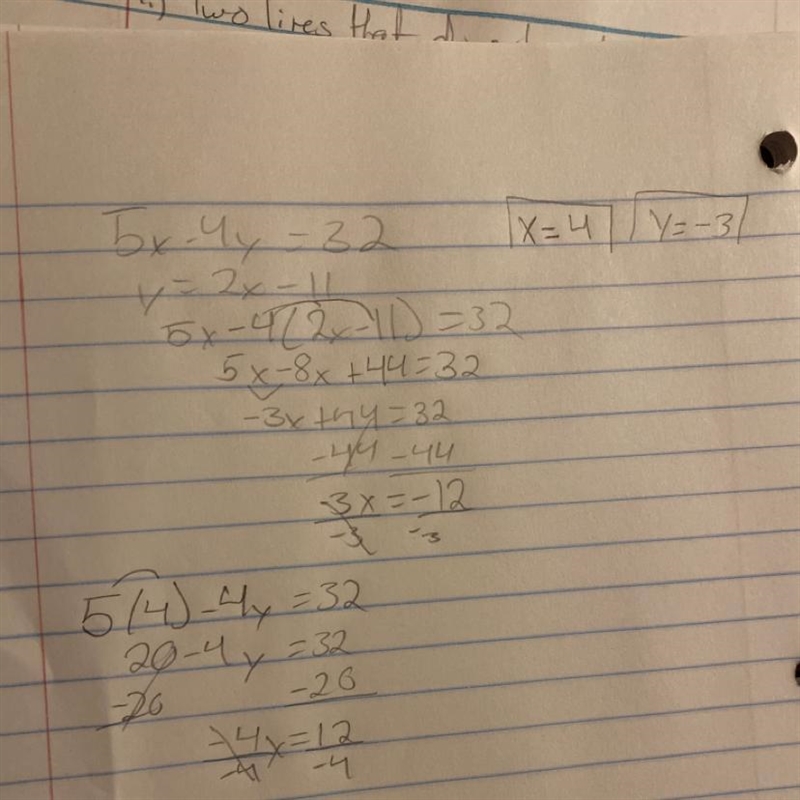 Two lines that
5x-4y=32
x=4 y=-3
y=2x-11
5x-4(2x-11)=32
5x-8x+44=32
-3x+44=32
-44 -44
-3x=-12
-3 -3
5(4)-4y=32
20-4y=32
-20 -20
-4y=12
-4 -4